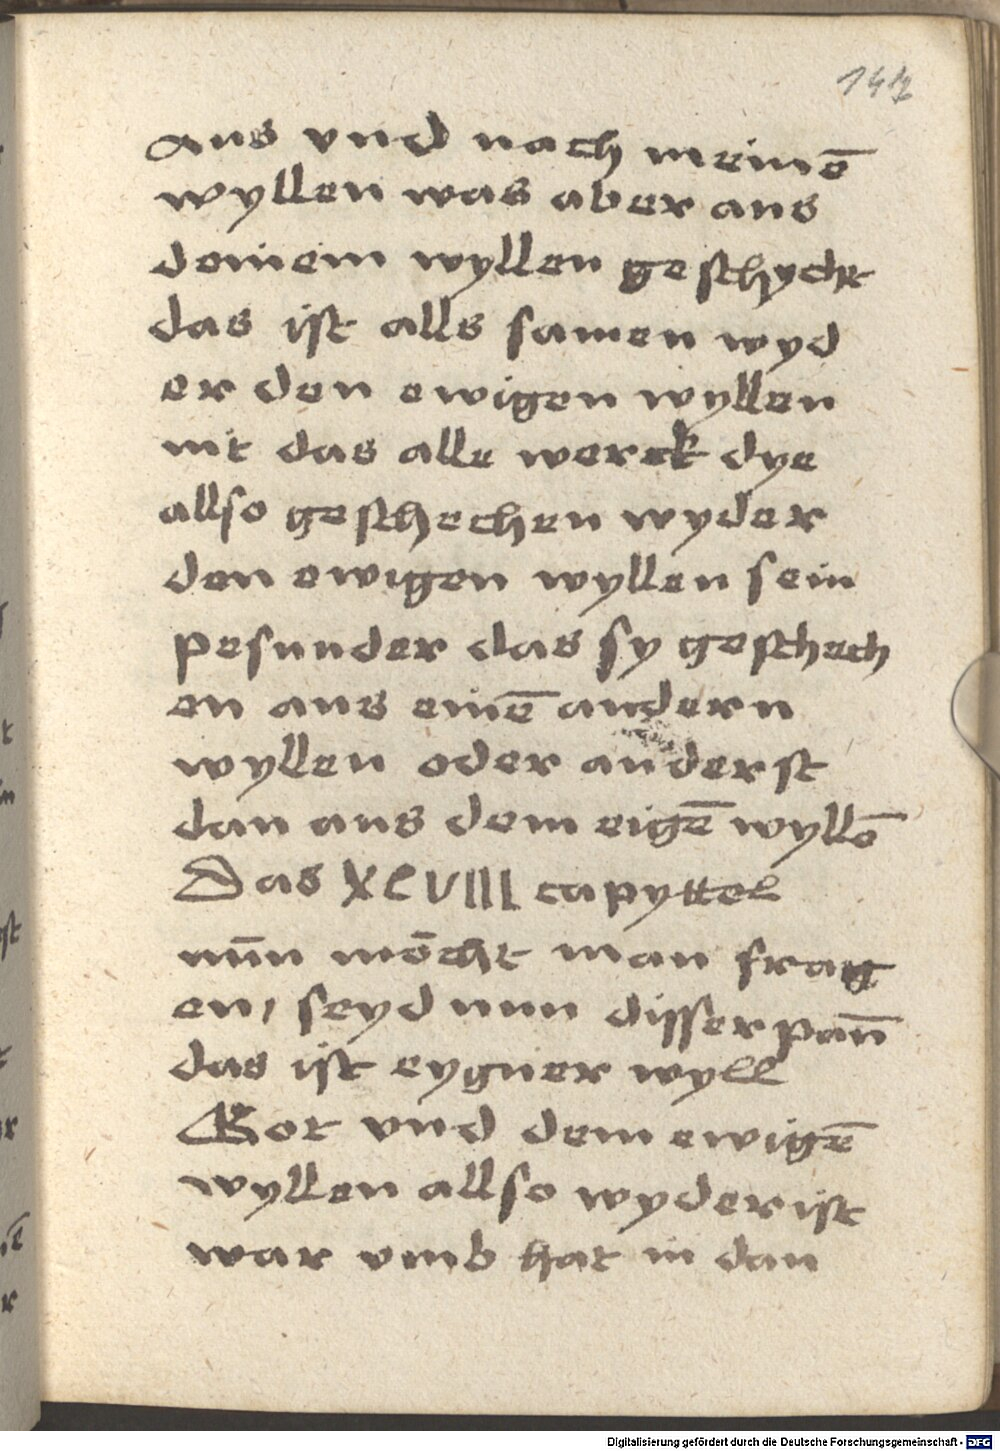 147
aus vnd nach meinē
wyllen was aber aus
deinem wyllen geschycht
das ist alls samen wyd
er den ewigen wyllen
nit das alle werck dye
allso geschechen wyder
den ewigen wyllen sein
pesunder das sy geschech
en aus einē andern
wyllen oder anderst
dan aus dem eigē wyllē
Das XLVIII capyttel
nūn möcht man frag
en / seyd nun disser pan̄
das ist eygner wyll
Got vnd dem ewigē
wyllen allso wyder ist
war vmb hat in dan
Digitalisierung gefördert durch die Deutsche Forschungsgemeinschaft - DFG